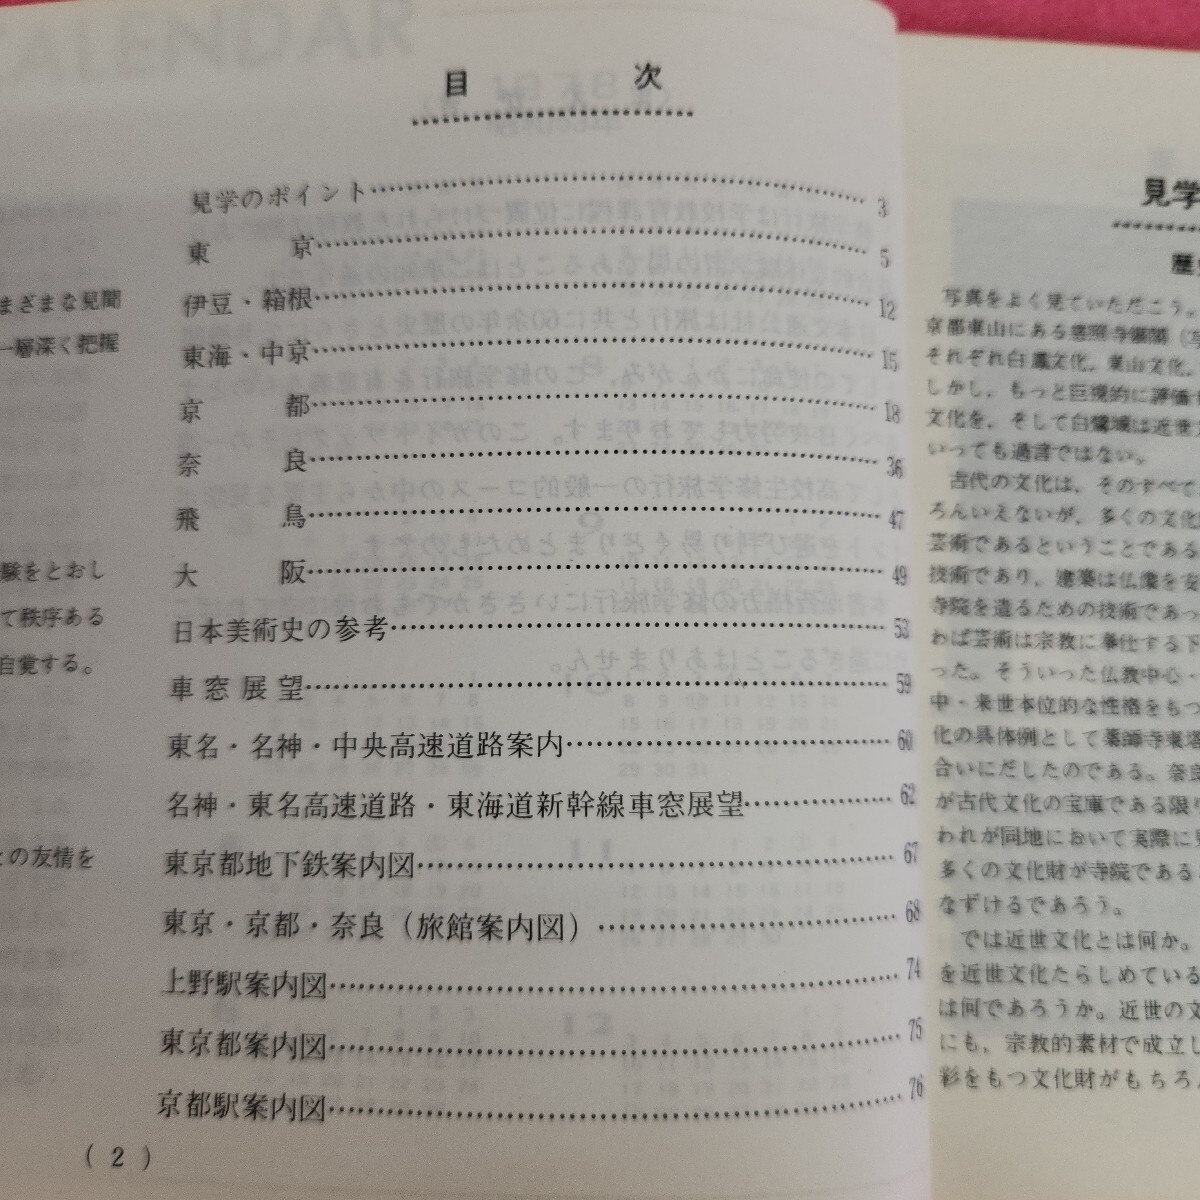 CALENDAR
目次
見学のポイント 3
東京 5
伊豆・箱根 12
東海・中京 15
京都 18
奈良 36
飛鳥 47
大阪 49
日本美術史の参考 53
車窓展望 59
東名・名神・中央高速道路案内 60
名神・東名高速道路・東海道新幹線車窓展望 62
東京都地下鉄案内図 67
東京・京都・奈良(旅館案内図) 68
上野駅案内図 74
東京都案内図 75
京都駅案内図 76
(2)
まざまな見聞
一層深く把握
験をとおし
て秩序ある
自覚する。
との友情を
見学
歴史
写真をよく見ていただこう。
京都東山にある慈照寺銀閣(写
それぞれ白鳳文化,東山文化,
しかし,もっと巨視的に評価す
文化を,そして白鷺城は近世文
いっても過言ではない。
古代の文化は,そのすべて
ろんいえないが,多くの文化
芸術であるということである
技術であり,建築は仏像を安
寺院を造るための技術であっ
わば芸術は宗教に奉仕する下
った。そういった仏教中心・
中・来世本位的な性格をもつ
化の具体例として薬師寺東塔
合いにだしたのである。奈良
が古代文化の宝庫である限り
われが同地において実際に見
多くの文化財が寺院である
なずけるであろう。
では近世文化とは何か。
を近世文化たらしめている
は何であろうか。近世の文
にも,宗教的素材で成立し
彩をもつ文化財がもちろん